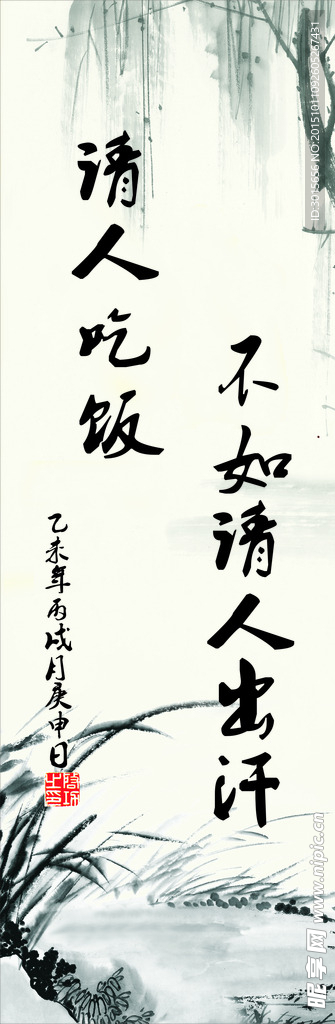 请人吃饭
不如请人出汗
乙未年丙戌月庚申日
ID:3015656 NO:20151011092605267431
昵享网 www.nipic.cn